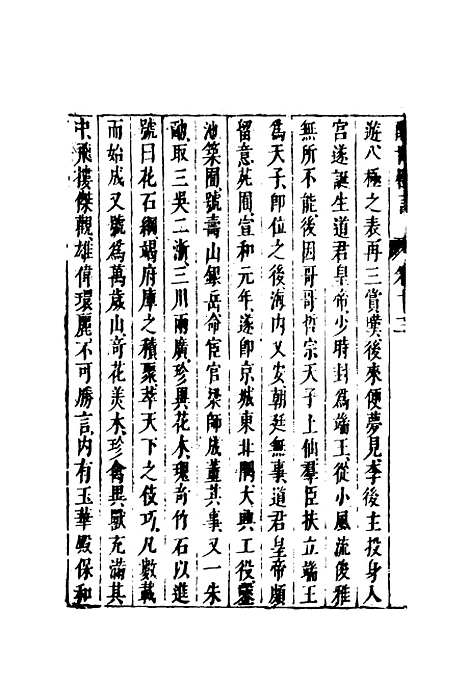 卷十三
遊八極之表再三賞嘆後來便夢見李後主投身入
宮遂誕生道君皇帝少時封為端王從小風流俊雅
無所不能後因哥哥哲宗天子上仙羣臣扶立端王
為天子即位之後海內乂安朝廷無事道君皇帝頗
留意苑囿宣和元年遂即京城東北隅大興工役鑿
池築囿號壽山銀岳命宦官梁師成董其事又一朱
勔取三吳二浙三川兩廣珍異花木瑰奇竹石以進
號曰花石綱竭府庫之積聚萃天下之伎巧凡數載
而始成又號為萬歲山奇花美木珍禽異獸充滿其
中飛樓傑觀雄偉瓌麗不可勝言內有玉華殿保和